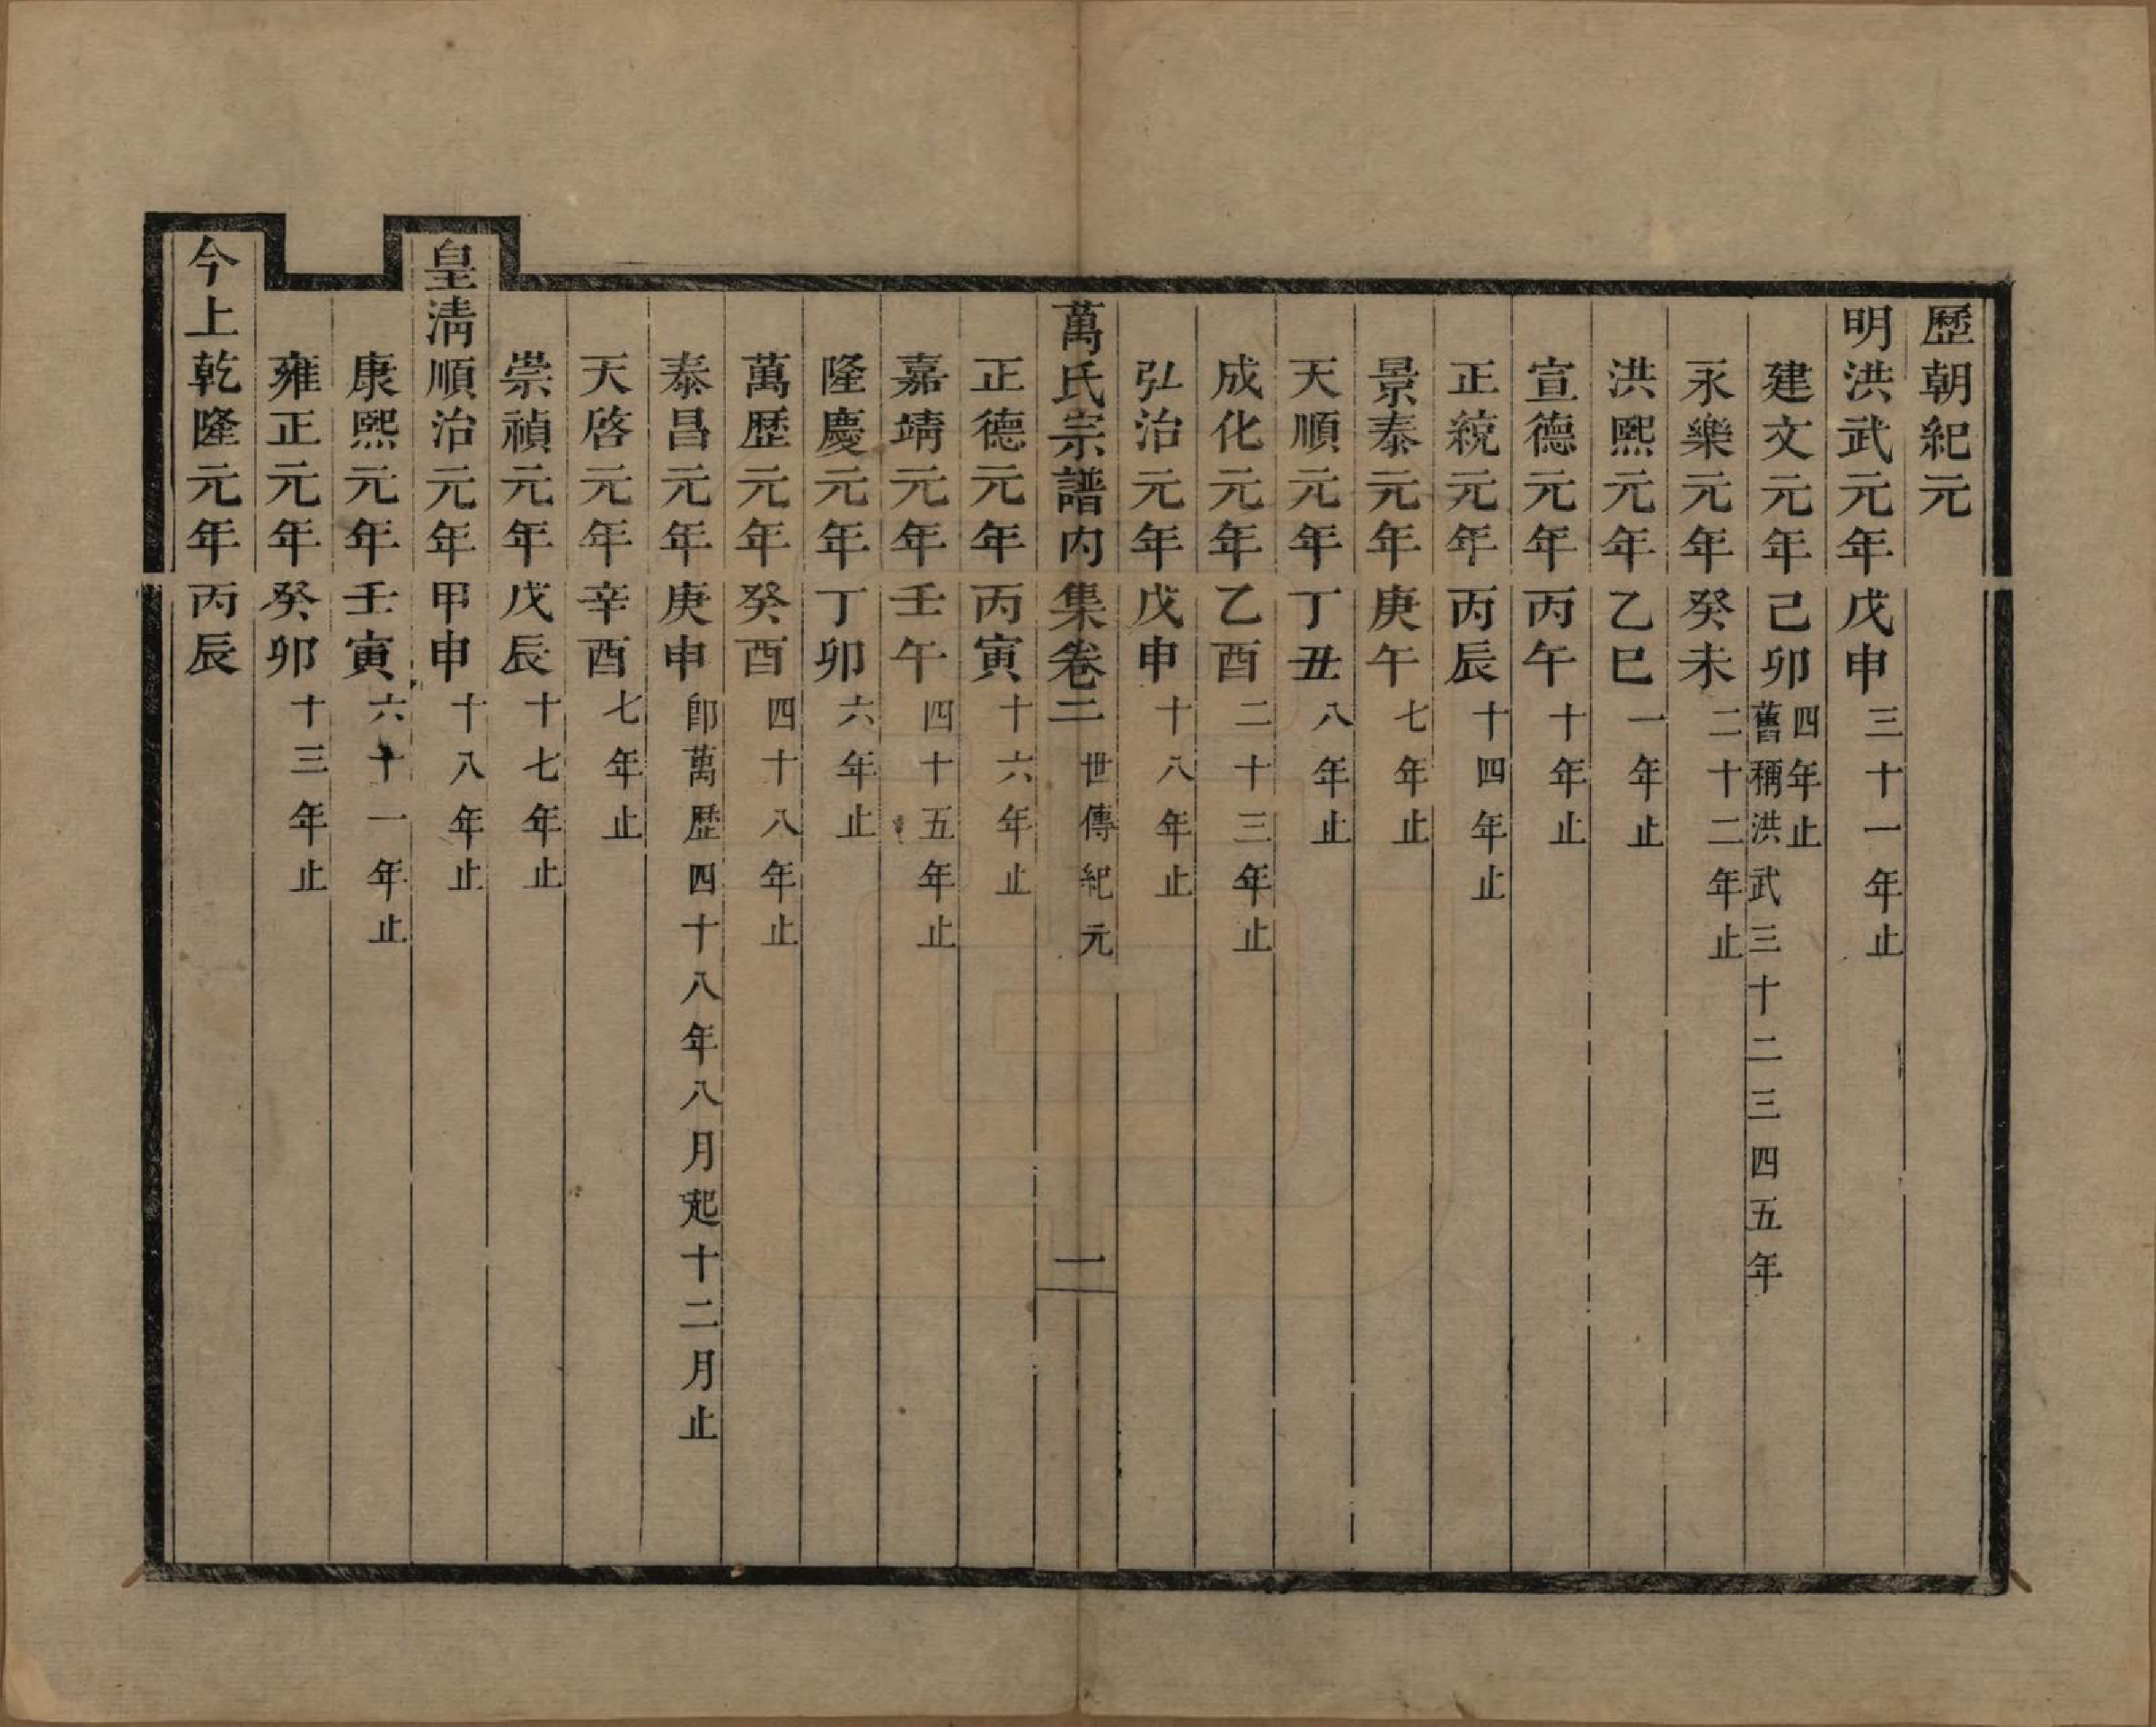 歷朝紀元
明洪武元年戊申三十一年止
建文元年己卯四年止舊稱洪武三十二三四五年
永樂元年癸未二十二年止
洪熙元年乙巳一年止
宣德元年丙午十年止
正統元年丙辰十四年止
景泰元年庚午七年止
天順元年丁丑八年止
成化元年乙酉二十三年止
弘治元年戊申十八年止
萬氏宗譜內集卷二 世傳紀元 一
正德元年丙寅十六年止
嘉靖元年壬午四十五年止
隆慶元年丁卯六年止
萬歷元年癸酉四十八年止
泰昌元年庚申卽萬歷四十八年八月起十二月止
天啓元年辛酉七年止
崇禎元年戊辰十七年止
皇淸順治元年甲申十八年止
康熙元年壬寅六十一年止
雍正元年癸卯十三年止
今上乾隆元年丙辰